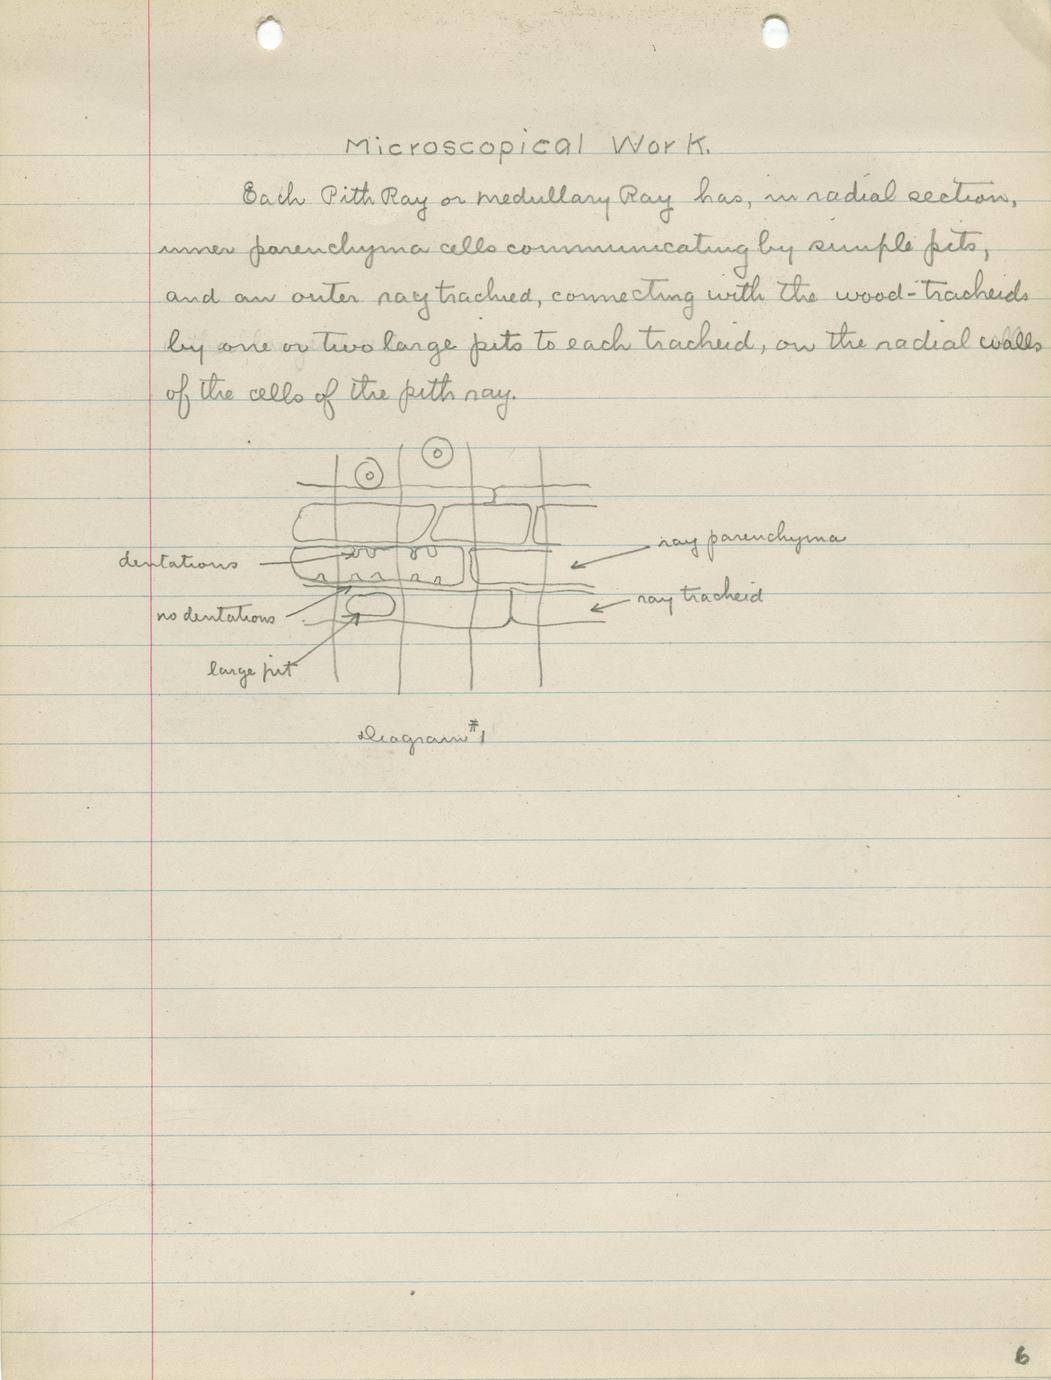 Microscopical Work.
Each Pith Ray or medullary Ray has, in radial section,
inner parenchyma cells communicating by simple pits,
and an outer ray trachied, connecting with the wood-tracheids
by one or two large pits to each tracheid, on the radial walls
of the cells of the pith ray.
ray parenchyma
dentations
ray tracheid
no dentations
large pit
Diagram #1
6